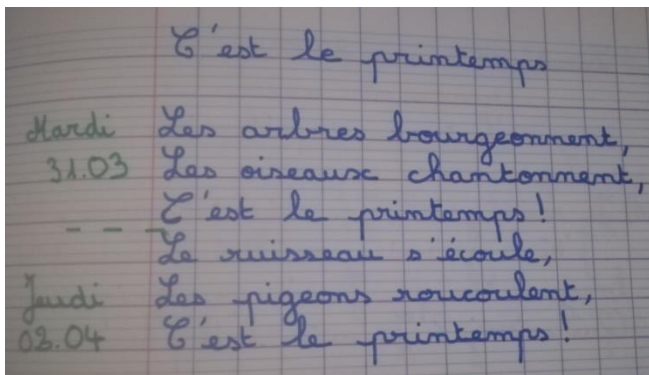 C'est le printemps
Mardi Les arbres bourgeonnent,
31.03 Les oiseaux chantonnent,
C'est le printemps !
Le ruisseau s'écoule,
Jeudi Les pigeons roucoulent,
02.04 C'est le printemps !